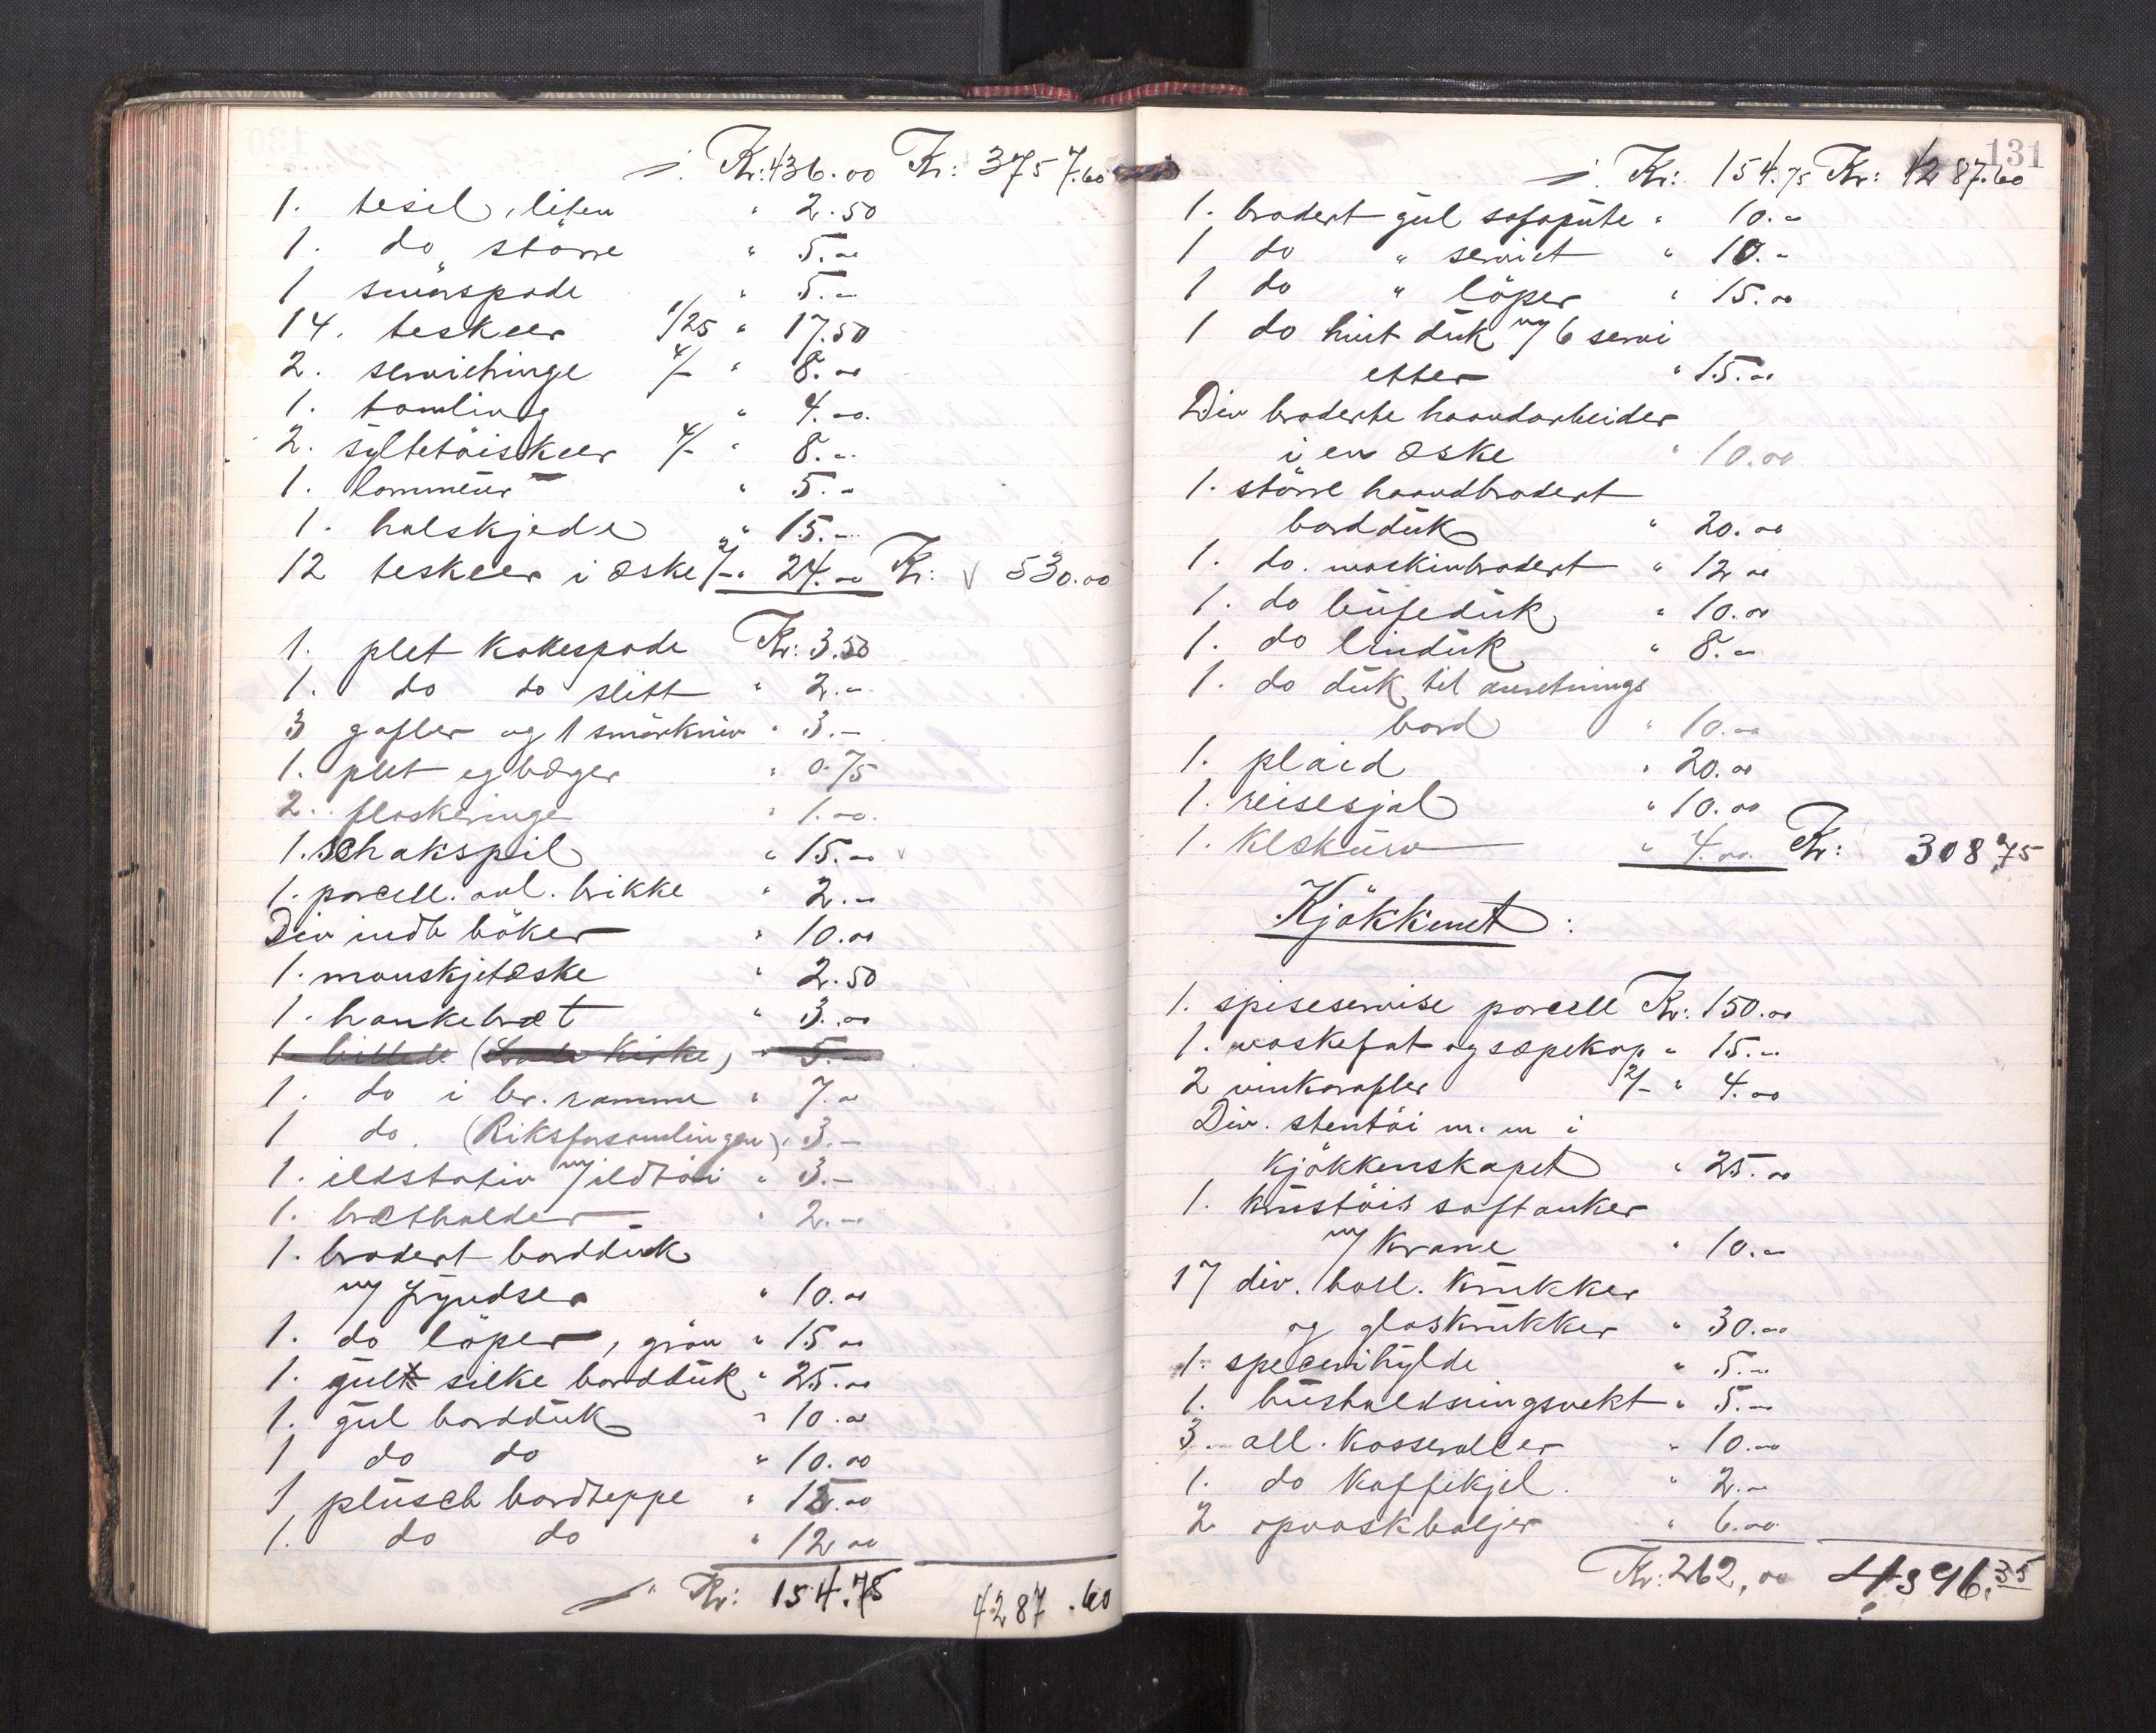 ./. Kr: 436.00 Kr: 3757.60
1. tesil, liten " 2.50
1. do, större " 5.00
1 smörspade " 5.00
14. teskeer 1/25 " 17.50
2. servietringe 4/- " 8.00
1. tomling " 4.00
2. syltetöiskeer 4/- " 8.00
1. lommeur " 5.00
1. halskjede " 15.00
12 teskeer i æske 2/- " 24.00 Kr: 530.00
1. plet kakespade Kr: 3.50
1. do do slitt " 2.00
3 gafler og 1 smörkniv " 3.-
1. plet egbæger " 0.75
2. flaskeringe " 1.00
1. Schakspil " 15.00
1. porcell. øul. brikke " 2.00
Div indb böker " 10.00
1. manskjetæske " 2.50
1. hankebræt " 3.00
1. billede ( Kirke) " 5.00
1. do i br. ramme " 7.00
1 do. (Riksforsamlingen) " 3.-
1. ildstativ m/ ildtöi " 3.-
1. brætholder " 2.00
1. brodert bordduk
m/ fryndser " 10.00
1. do löper, grön " 15.00
1. gult silke bordduk " 25.00
1. gul bordduk " 10.00
1 do do " 10.00
1 plüsch bordteppe " 15.00
1. do do " 12.00
./. Kr: 154.75 4287.60
131
./. Kr: 154.75 Kr: 4287.60
1. brodert gul sofapute " 10.00
1 do " serviet " 10.-
1 do " löper " 15.00
1 do hvit duk m/ 6 servi
etter " 15.00
Div broderte haandarbeider
i en æske " 10.00
1. större haandbrodert
bordduk " 20.00
1. do. maskinbrodert " 12.00
1. do büfeduk " 10.00
1. do linduk " 8.00
1. do duk til anretnings
bord " 10.00
1. plaid " 20.00
1. reisesjal " 10.00
1. Klæskurv " 4.00 Kr: 308.75
Kjökkenet:
1. spiseservise porcell Kr: 150.00
1. vaskefat og sæpekop " 15.00
2 vinkarafler 2/- " 4.00
Div. stentöi m. m i
kjökkenskapet " 25.00
1. krustöis saftanker
m/ krane " 10.00
17 div. hasl. krukker
og glaskrukker " 30.00
1. specerihylde " 5.00
1. husholdningsvekt " 5.00
3. all. kasseroller " 10.00
1. do kaffikjel " 2.00
2 opvaskbaljer " 6.00
Kr: 262,00 4396.35